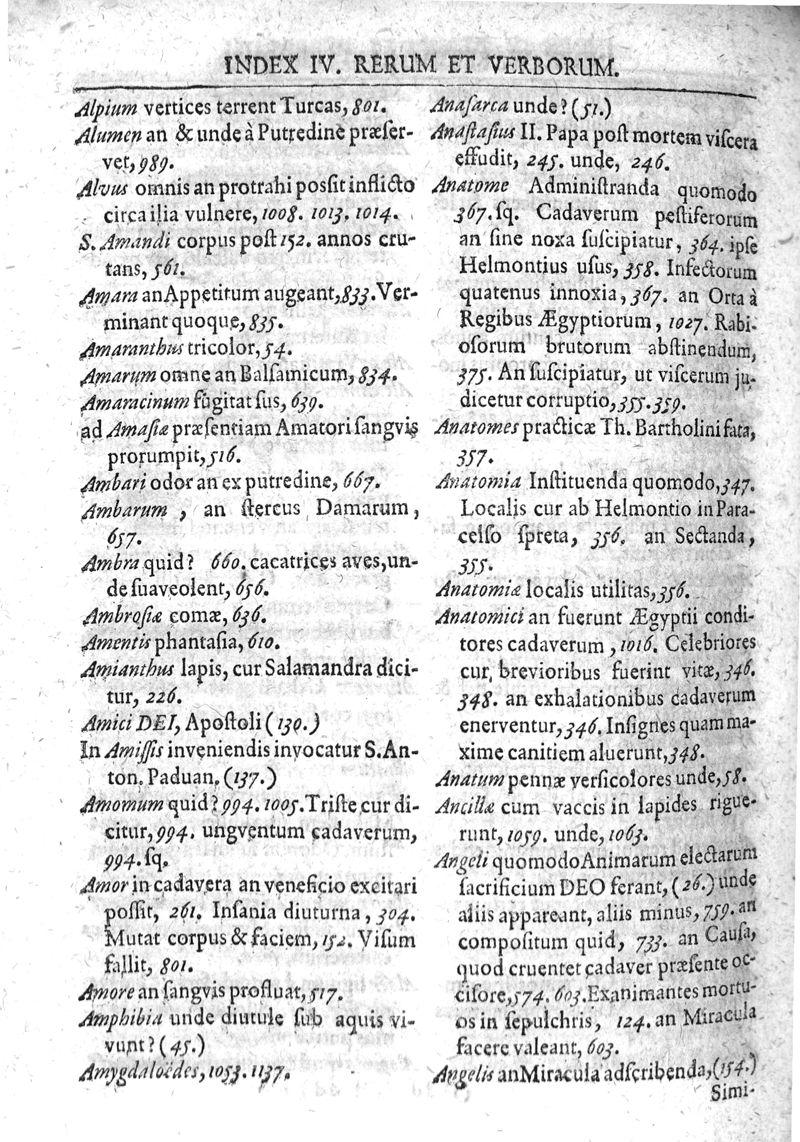 INDEX IV. RERUM ET VERBORUM.
Alpium vertices terrent Turcas, 801.
Alumen an & unde à Putredine præser-
vet, 989.
Alvus omnis an protrahi possit inflicto
circa ilia vulnere, 1008. 1013. 1014.
S. Amandi corpus post 152. annos cru-
tans, 561.
Amara an Appetitum augeant, 833. Ver-
minant quoque, 835.
Amaranthus tricolor, 54.
Amarum omne an Balsamicum, 834.
Amaracinum fugitat sus, 639.
ad Amasiæ præsentiam Amatori sangvis
prorumpit, 516.
Ambari odor an ex putredine, 667.
Ambarum, an stercus Damarum,
657.
Ambra quid? 660. cacatrices aves, un-
de suaveolent, 656.
Ambrosiæ comæ, 636.
Amentis phantasia, 610.
Amianthus lapis, cur Salamandra dici-
tur, 226.
Amici DEI, Apostoli (130.)
In Amissis inveniendis invocatur S. An-
ton. Paduan. (137.)
Amomum quid? 994. 1005. Triste cur di-
citur, 994. ungventum cadaverum,
994. sq.
Amor in cadavera an veneficio excitari
possit, 261. Insania diuturna, 304.
Mutat corpus & faciem, 152. Visum
fallit, 801.
Amore an sangvis profluat, 517.
Amphibia unde diutule sub aquis vi-
vunt? (45.)
Amygdaloëdes, 1053. 1137.
Anasarca unde? (51.)
Anastasius II. Papa post mortem viscera
effudit, 245. unde, 246.
Anatome Administranda quomodo
367. sq. Cadaverum pestiferorum
an sine noxa suscipiatur, 364. ipse
Helmontius usus, 358. Infectorum
quatenus innoxia, 367. an Orta à
Regibus Ægyptiorum, 1027. Rabi-
osorum brutorum abstinendum,
375. An suscipiatur, ut viscerum ju-
dicetur corruptio, 355. 359.
Anatomes practicæ Th. Bartholini fata,
357.
Anatomia Instituenda quomodo, 347.
Localis cur ab Helmontio in Para-
celso spreta, 356. an Sectanda,
355.
Anatomiæ localis utilitas, 356.
Anatomici an fuerunt Ægyptii condi-
tores cadaverum, 1016. Celebriores
cur, brevioribus fuerint vitæ, 346.
348. an exhalationibus cadaverum
enerventur, 346. Insignes quam ma-
xime canitiem aluerunt, 348.
Anatum pennæ versicolores unde, 58.
Ancillæ cum vaccis in lapides rigue-
runt, 1059. unde, 1063.
Angeli quomodo Animarum electarum
sacrificium DEO ferant, (26.) unde
aliis appareant, aliis minus, 759. an
compositum quid, 733. an Causa,
quod cruentet cadaver præsente oc-
cisore, 574. 603. Exanimantes mortu-
os in sepulchris, 124. an Miracula
facere valeant, 603.
Angelis an Miracula adscribenda, (154.)
Simi-